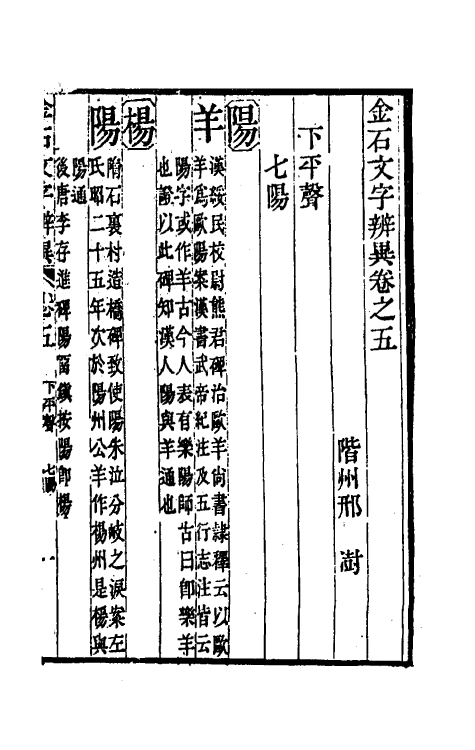 金石文字辨異卷之五
階州邢 澍
下平聲
七陽
陽
羊
漢綏民校尉熊君碑治歐羊尙書隸釋云以歐
羊爲歐陽案漢書武帝紀注及五行志注皆云
陽字或作羊古今人表有樂陽師古曰卽樂羊
也證以此碑知漢人陽與羊通也
楊
陽
附石裏村造橋碑致使陽朱泣分岐之淚案左
氏昭二十五年次於陽州公羊作楊州是楊與
陽通
後唐李存進碑陽留鎮按陽卽楊
金石文字辨異 卷五 下平聲 七陽 一